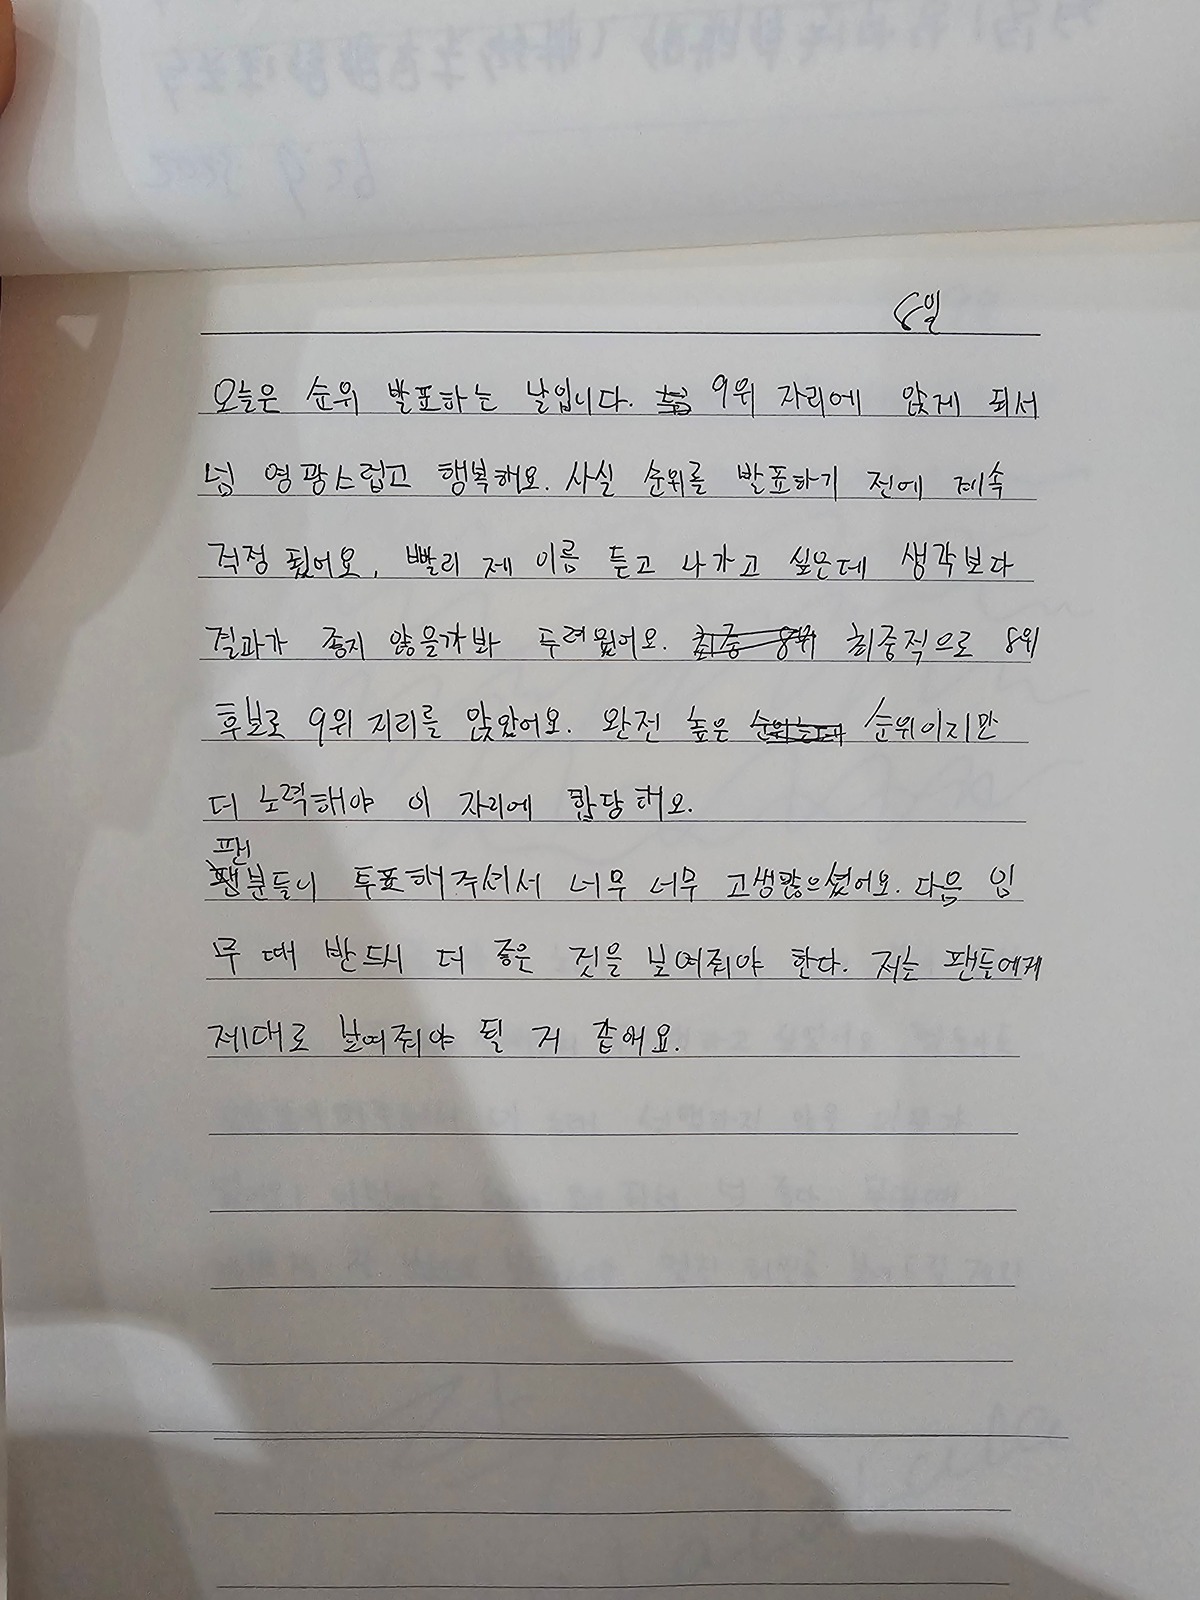 6일
오늘은 순위 발표하는 날입니다. 9위 자리에 앉게 되서
넘 영광스럽고 행복해요. 사실 순위를 발표하기 전에 계속
걱정 됬어요, 빨리 제 이름 듣고 나가고 싶은데 생각보다
결과가 좋지 않을가봐 두려웠어요. 최종 8위 최종적으로 8위
후보로 9위 자리를 앉았어요. 완전 높은 순위이지만
더 노력해야 이 자리에 합당해요.
팬
팬분들니 투표해주셔서 너무 너무 고생많으셨어요. 다음 임
무 때 반드시 더 좋은 것을 보여줘야 한다. 저는 팬들에게
제대로 보여줘야 될 거 같애요.